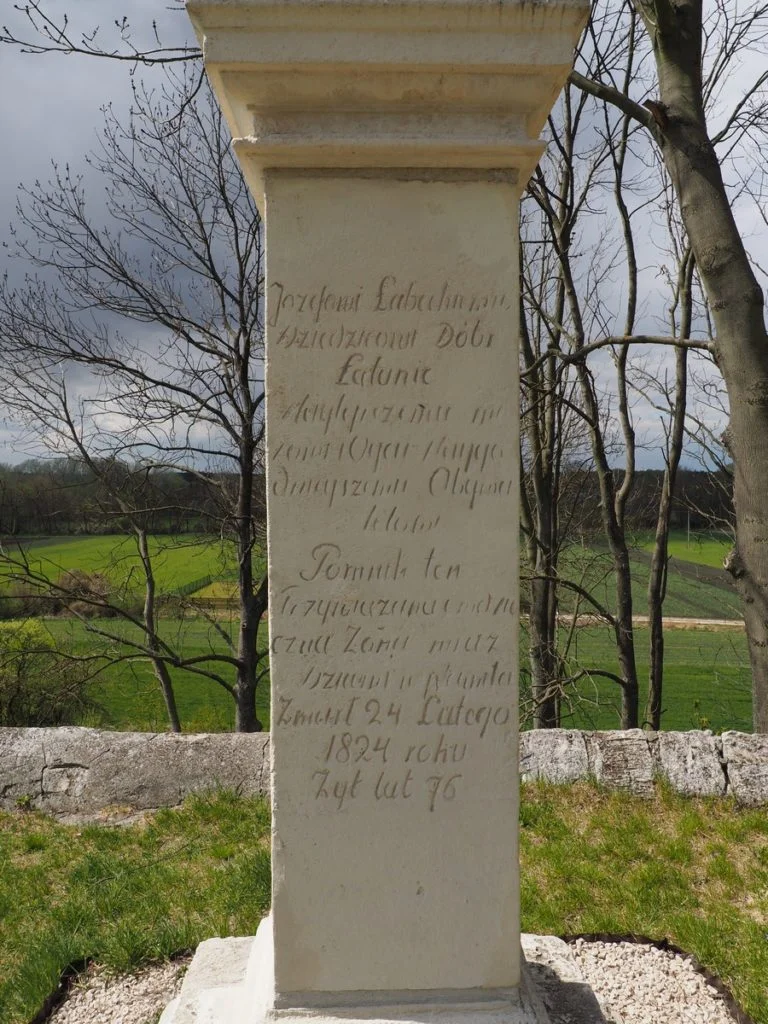 Jozefowi Łabęckiemu
Dziedzicowi Dóbr
Łatanic
Naylepszemu mę
żowi i Oycu Naygo
dnieyszemu Obywa
telowi
Pomnik ten
Przywiązana i wdzię
czna Żona wraz
Dziećmi
Zmarł 24 Lutego
1824 roku
Żył lat 76